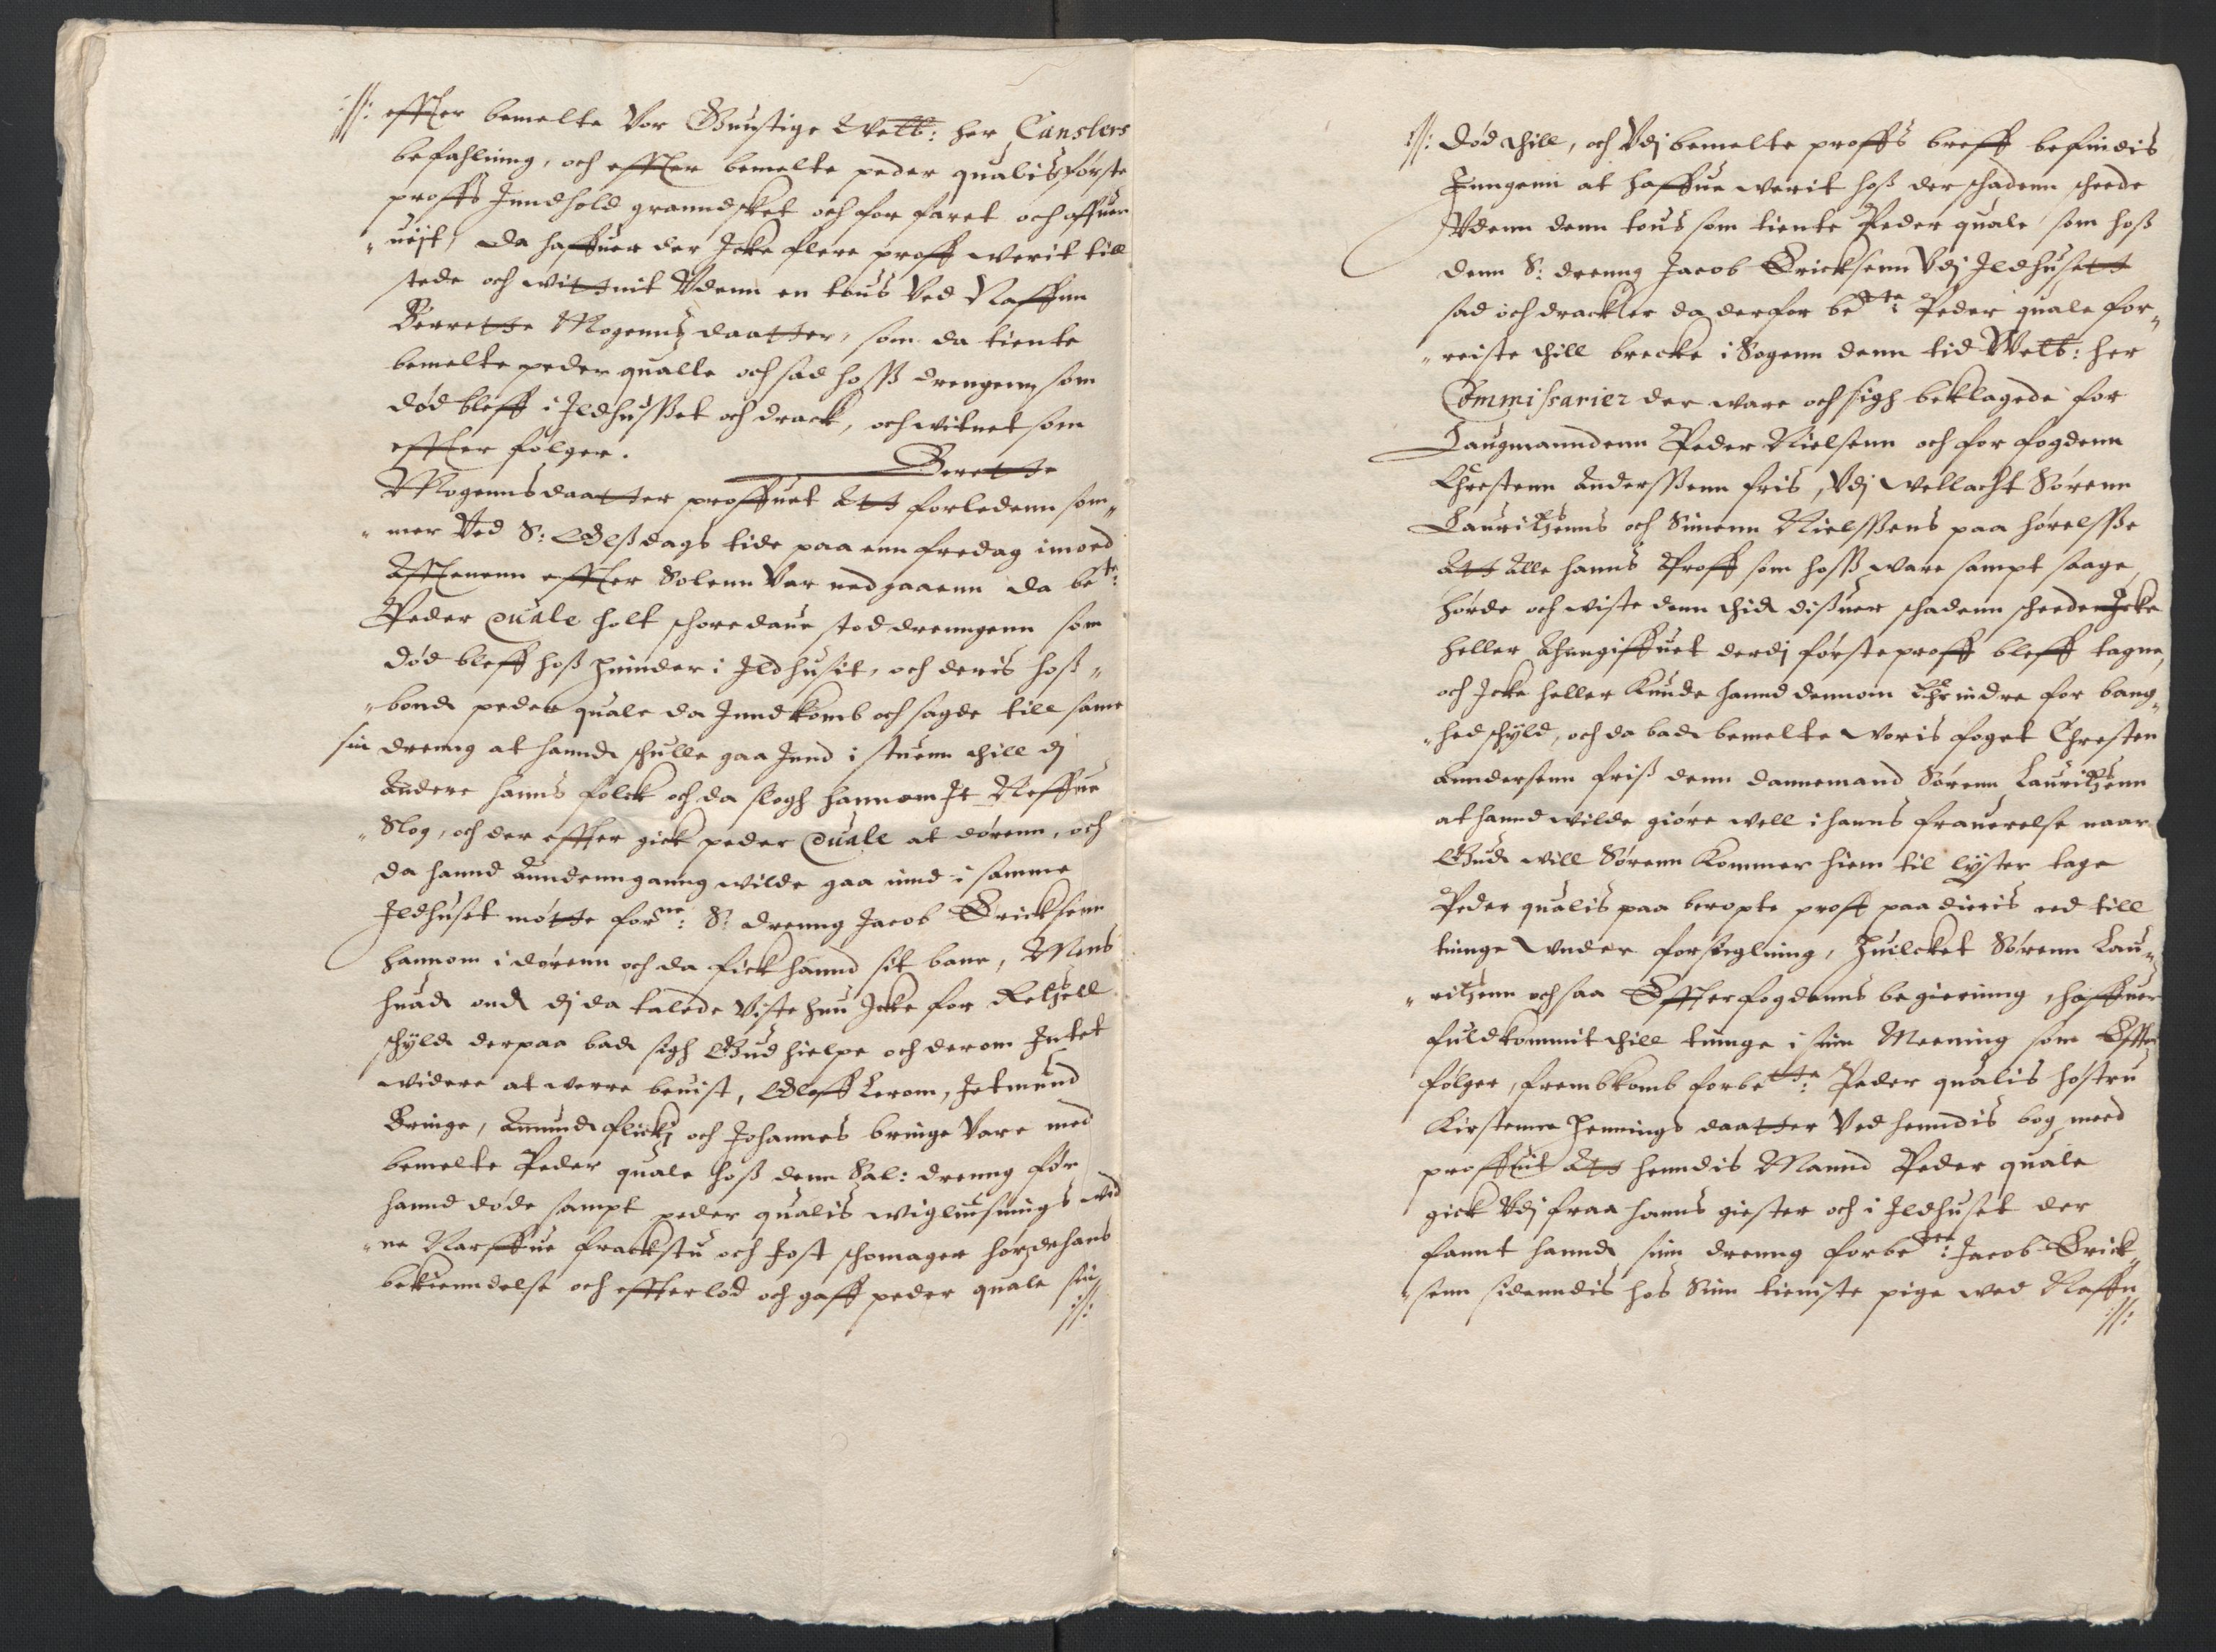 :/: effter bemelte Vor Gunstige Welb: her Canslers
befahlning, och effter bemelte peder qualis første
proffs Inndhold granndsket och for faret och offuer
"ueist, da haffuer der Icke flere proff werit till
stede och wittnit Vdenn en tous Ved Naffnn
Berrette Mogennsdaatter, som da tiente
bemelte peder qualle och sad hoss drengenn som
død bleff i Ildhusset och drack, och witnet som
effter følger. Berette
Mogennsdaatter proffuet Att forledenn som„
"mer Ved S: Olssdags tide paa enn fredag imoed
Afftenenn effter Solenn Var nedgaaenn da bete:
Peder Quale holt schoredaue stod drenngenn som
død bleff hoss hinder i Ildhusit, och deris hoss„
"bond peder quale da Inndkomb och sagde till same
sin drenng at hannd schulle gaa Innd i stuenn thill dj
Andere hanns folck och da slogh hannom It Neffue
"Slog, och der effter gick peder Quale at dørenn, och
da hannd Anndennganng wilde gaa innd i samme
Ildhuset møtte forne: S: drenng Jacob Ericksenn
hannom i dørenn och da fick hannd sit bane, Mens
huad ond dj da talede Viste hun Icke for Retzell
schyld derpaa bad sigh Gud hielpe och derom Intet
widere at werre beuist, Oleff Lerom, Jetmund
Bringe, Amund flickj och Johannes bringe Vare med
bemelte Peder quale hoss denn Sal: drenng før
hannd døde sampt peder qualis wigliusnings wid
"ne Narffue frackstu och Jost schomager hørde hans
bekienndelse och effterlod och gaff peder quale sin
:/:
:/: død thill, och Vdj bemelte proffs breff befindis
Inngenn at haffue werit hoss der schadenn scheede
Vdenn denn tous som tiente Peder quale som hoss
denn S: drenng Jacob Ericksenn Vdj Ildhusett
sad och drack er da derfor bedte: Peder quale for„
"reiste thill brecke i Sogenn denn tid Welb: her
Commissarier der ware och sigh beklagede for
Laugmanndenn Peder Nielsenn och for fogdenn
Chrestenn Anderssenn fris, Vdj wellacht Sørenn
Lauritzenns och Simenn Nielssens paa hørelsse
Att Alle hanns Proff som hoss ware sampt saage,
hørde och wiste denn thid dissuer schadenn scheede Icke
heller Ahngiffuet derdj første proff bleff tagne,
och Icke heller Kunde hannd dennom Ehrindre for bang„
"hed schyld, och da bad bemelte woris foget Chresten
Anndersenn friss denn dannemand Sørenn Lauritzenn
at hannd wilde giøre well i hanns frauerelse naar
Gud will Sørenn Kommer hiem til lyster tage
Peder qualis paa beropte proff paa dieris eed till
tinnge Vnder forseglning, Huilcket Sørenn Lau„
"ritzenn och saa Effter fogdenns begierinng, haffuer
fuldkommit thill tinnge i sinn Meening som Effter
følger, frembkomb forbette: Peder qualis hostru
Kirstenne Hennings daatter Ved henndis bog meed
proffuit Att henndis Mannd Peder quale
gick Vdj fraa hanns giester och i Ildhuset der
fannt hannd sinn drenng forbette: Jacob Erick„
"senn sidenndis hos Sinn tieniste pige wed Naffn
:/: